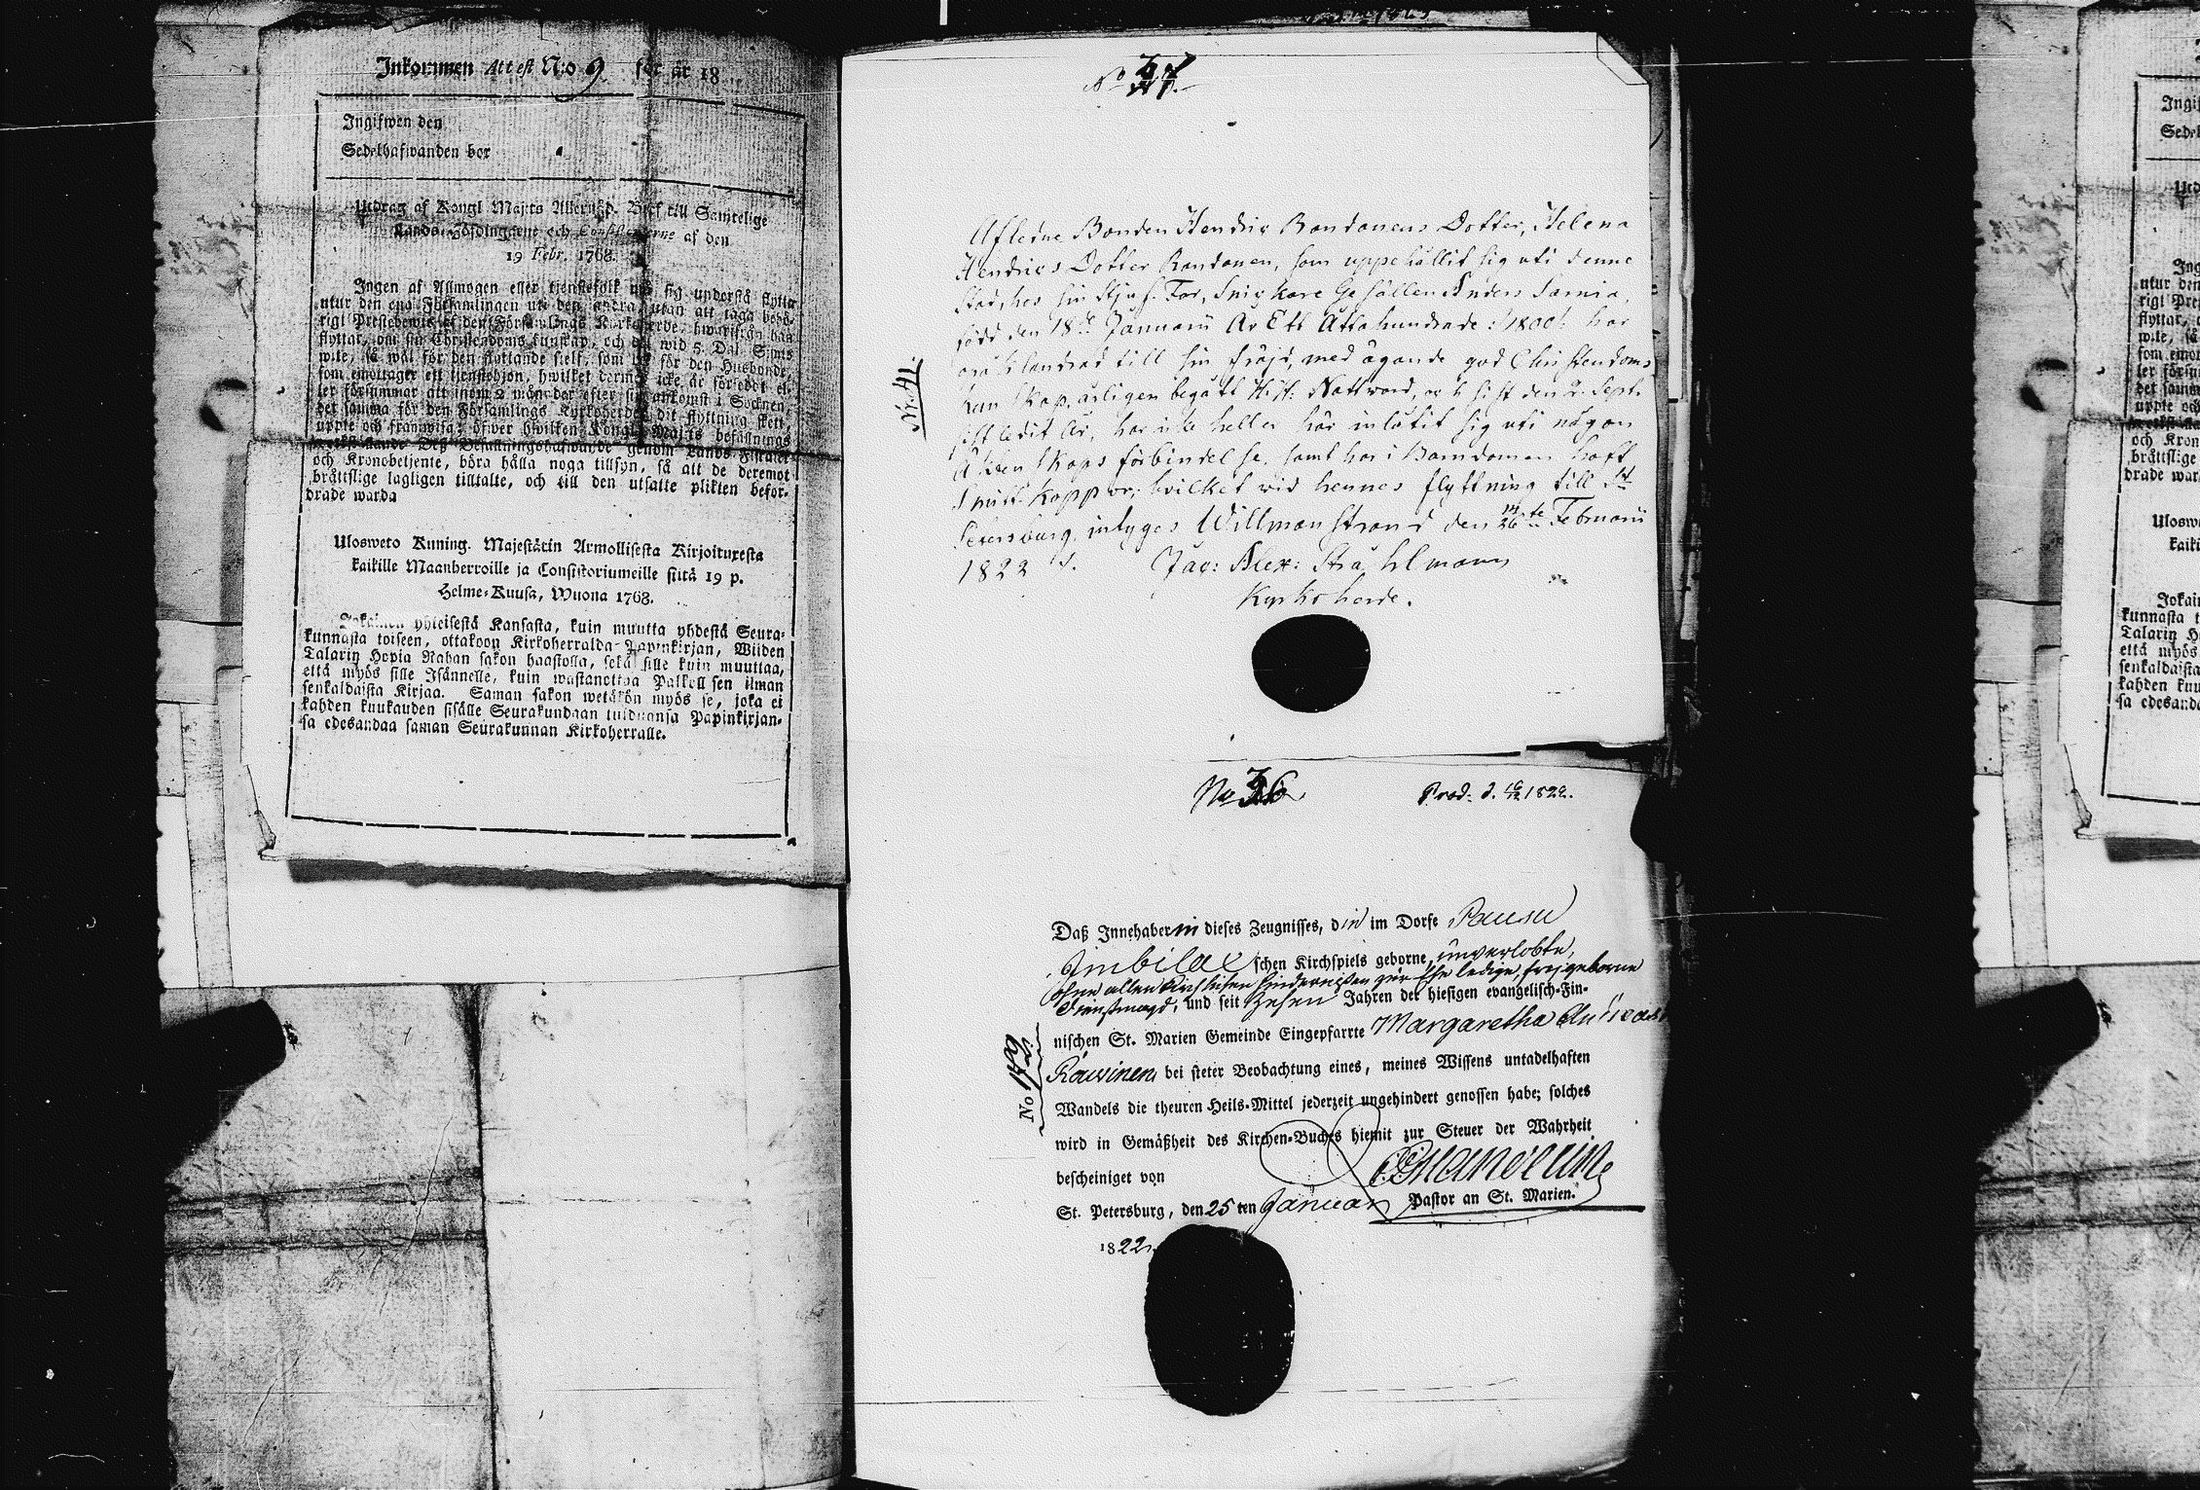 Inkommen Attest N:o 9 för år 18
Ingifwen den
Sedelhafwanden bor
Utdrag af Kongl Maj:ts Allernåd. Bref till Samtelige
Lands-Höfdingarne och Consistorierne af den
19 Febr. 1768.
Ingen af Allmogen eller tjenstefolk må sig understå flytta
utur den ena Församlingen uti den andra, utan att taga behö-
rigt Prestebewis af den Församlings Kyrkoherde, hwarifrån han
flyttar, om sin Christendoms kunskap, och det wid 5. Dal. S:mts
wite, så wäl för den flyttande sielf, som för den Husbonde,
som emottager ett tjenstehjon, hwilket dermed icke är försedt el-
ler försummar att inom 2 månader efter sin ankomst i Socknen,
det samma för den Församlings Kyrkoherde, dit flyttning skett,
uppte och framwisa; öfwer hwilken Kongl Maj:ts befallnings
werkställande Deß Befallningshafwande genom Lands-Fiscaler
och Kronobetjente, böra hålla noga tillsyn, så att de deremot
bråttslige lagligen tilltalte, och till den utsatte plikten beför-
drade warda
Ulosweto Kuning. Majestätin Armollisesta Kirjoituxesta
kaikille Maanherroille ja Consistoriumeille siitä 19 p.
Helme-Kuusa, Wuona 1768.
Jokainen yhteisestä Kansasta, kuin muutta yhdestä Seura-
kunnasta toiseen, ottakoon Kirkoherralda Papinkirjan, Wiiden
Talarin Hopia Rahan sakon haastolla, sekä sille kuin muuttaa,
että myös sille Isännelle, kuin wastanottaa Palkollisen ilman
senkaldaista Kirjaa. Saman sakon wetäkön myös se, joka ei
kahden kuukauden sisälle Seurakundaan tulduansa Papinkirjan-
sa edesandaa saman Seurakunnan Kirkoherralle.
No 37.
Afledne Bonden Hendric Rondonens Dotter, Helena
Hendrics Dotter Rondonen, som uppehållit sig uti denne
Stad, hos sin Stjuf-Far, Snickare Gesällen Anders Sarnia,
född den 18de Januarii Ar Ett Åttahundrade :/1800/: har
oråklandrad till sin fräjd, med ägande god Christendoms
Kunskap, årligen begått H. H: Nattward, och sist den 2. Sept.
sistledit År, har icke heller här inlåtit sig uti någon
Äktenskaps förbindelse, samt har i Barndomen haft
Smitt Koppor; hvilket wid hennes flyttning till St
Petersburg, intygas Willmanstrand den 26te Februarii
1822. Jac: Alex: Stråhlmann
Kyrkoherde.
Nr. 41.
No 36 Prod. d. 1822.
Daß Innehaberin dieses Zeugnisses, die im Dorfe
schen Kirchspiels geborne, unverlobte,
ohne allen kirchlichen Hindernissen zur Ehe ledige, freigeborne
Dienstmagd, und seit Zehen Jahren der hiesigen evangelisch-Fin-
nischen St. Marien Gemeinde Eingepfarrte Margaretha
Räwinen bei steter Beobachtung eines, meines Wissens untadelhaften
Wandels die theuren Heils-Mittel jederzeit ungehindert genossen habe; solches
wird in Gemäßheit des Kirchen-Buches hiemit zur Steuer der Wahrheit
bescheiniget von
St. Petersburg, den 25 ten Januar Pastor an St. Marien.
1822.